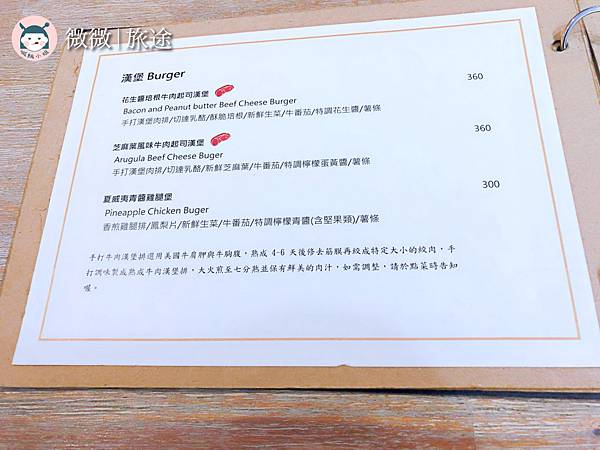 微微|旅途
漢堡 Burger
花生醬培根牛肉起司漢堡
360
Bacon and Peanut butter Beef Cheese Burger
手打漢堡肉排/切達乳酪/酥脆培根/新鮮生菜/牛番茄/特調花生醬/薯條
芝麻葉風味牛肉起司漢堡
360
Arugula Beef Cheese Buger
手打漢堡肉排/切達乳酪/新鮮芝麻葉/牛番茄/特調檸檬蛋黃醬/薯條
夏威夷青醬雞腿堡
300
Pineapple Chicken Buger
香煎雞腿排/鳳梨片/新鮮生菜/牛番茄/特調檸檬青醬(含堅果類)/薯條
手打牛肉漢堡排選用美國牛肩胛與牛胸腹，熟成 4-6 天後修去筋膜再絞成特定大小的絞肉，手
打調味製成熟成牛肉漢堡排，大火煎至七分熟並保有鮮美的肉汁，如需調整，請於點菜時告知
喔。